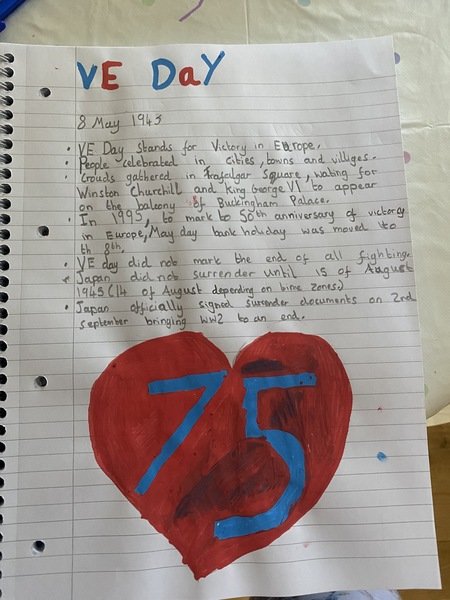 VE DaY
8 May 1945
• VE Day stands for Victory in Europe.
• People celebrated in cities, towns and villiges.
• Crouds gathered in Trafalgar Square, waiting for
Winston Churchill and King George VI to appear
on the balcony of Buckingham Palace.
• In 1995, to mark to 50th anniversary of victory
in Europe, May day bank holiday was moved to
th 8th.
• VE day did not mark the end of all fighting.
• Japan did not surrender until 15 of August
1945 (14 of August depending on time zones)
• Japan officially signed surrender documents on 2nd
september bringing WW2 to an end.
75